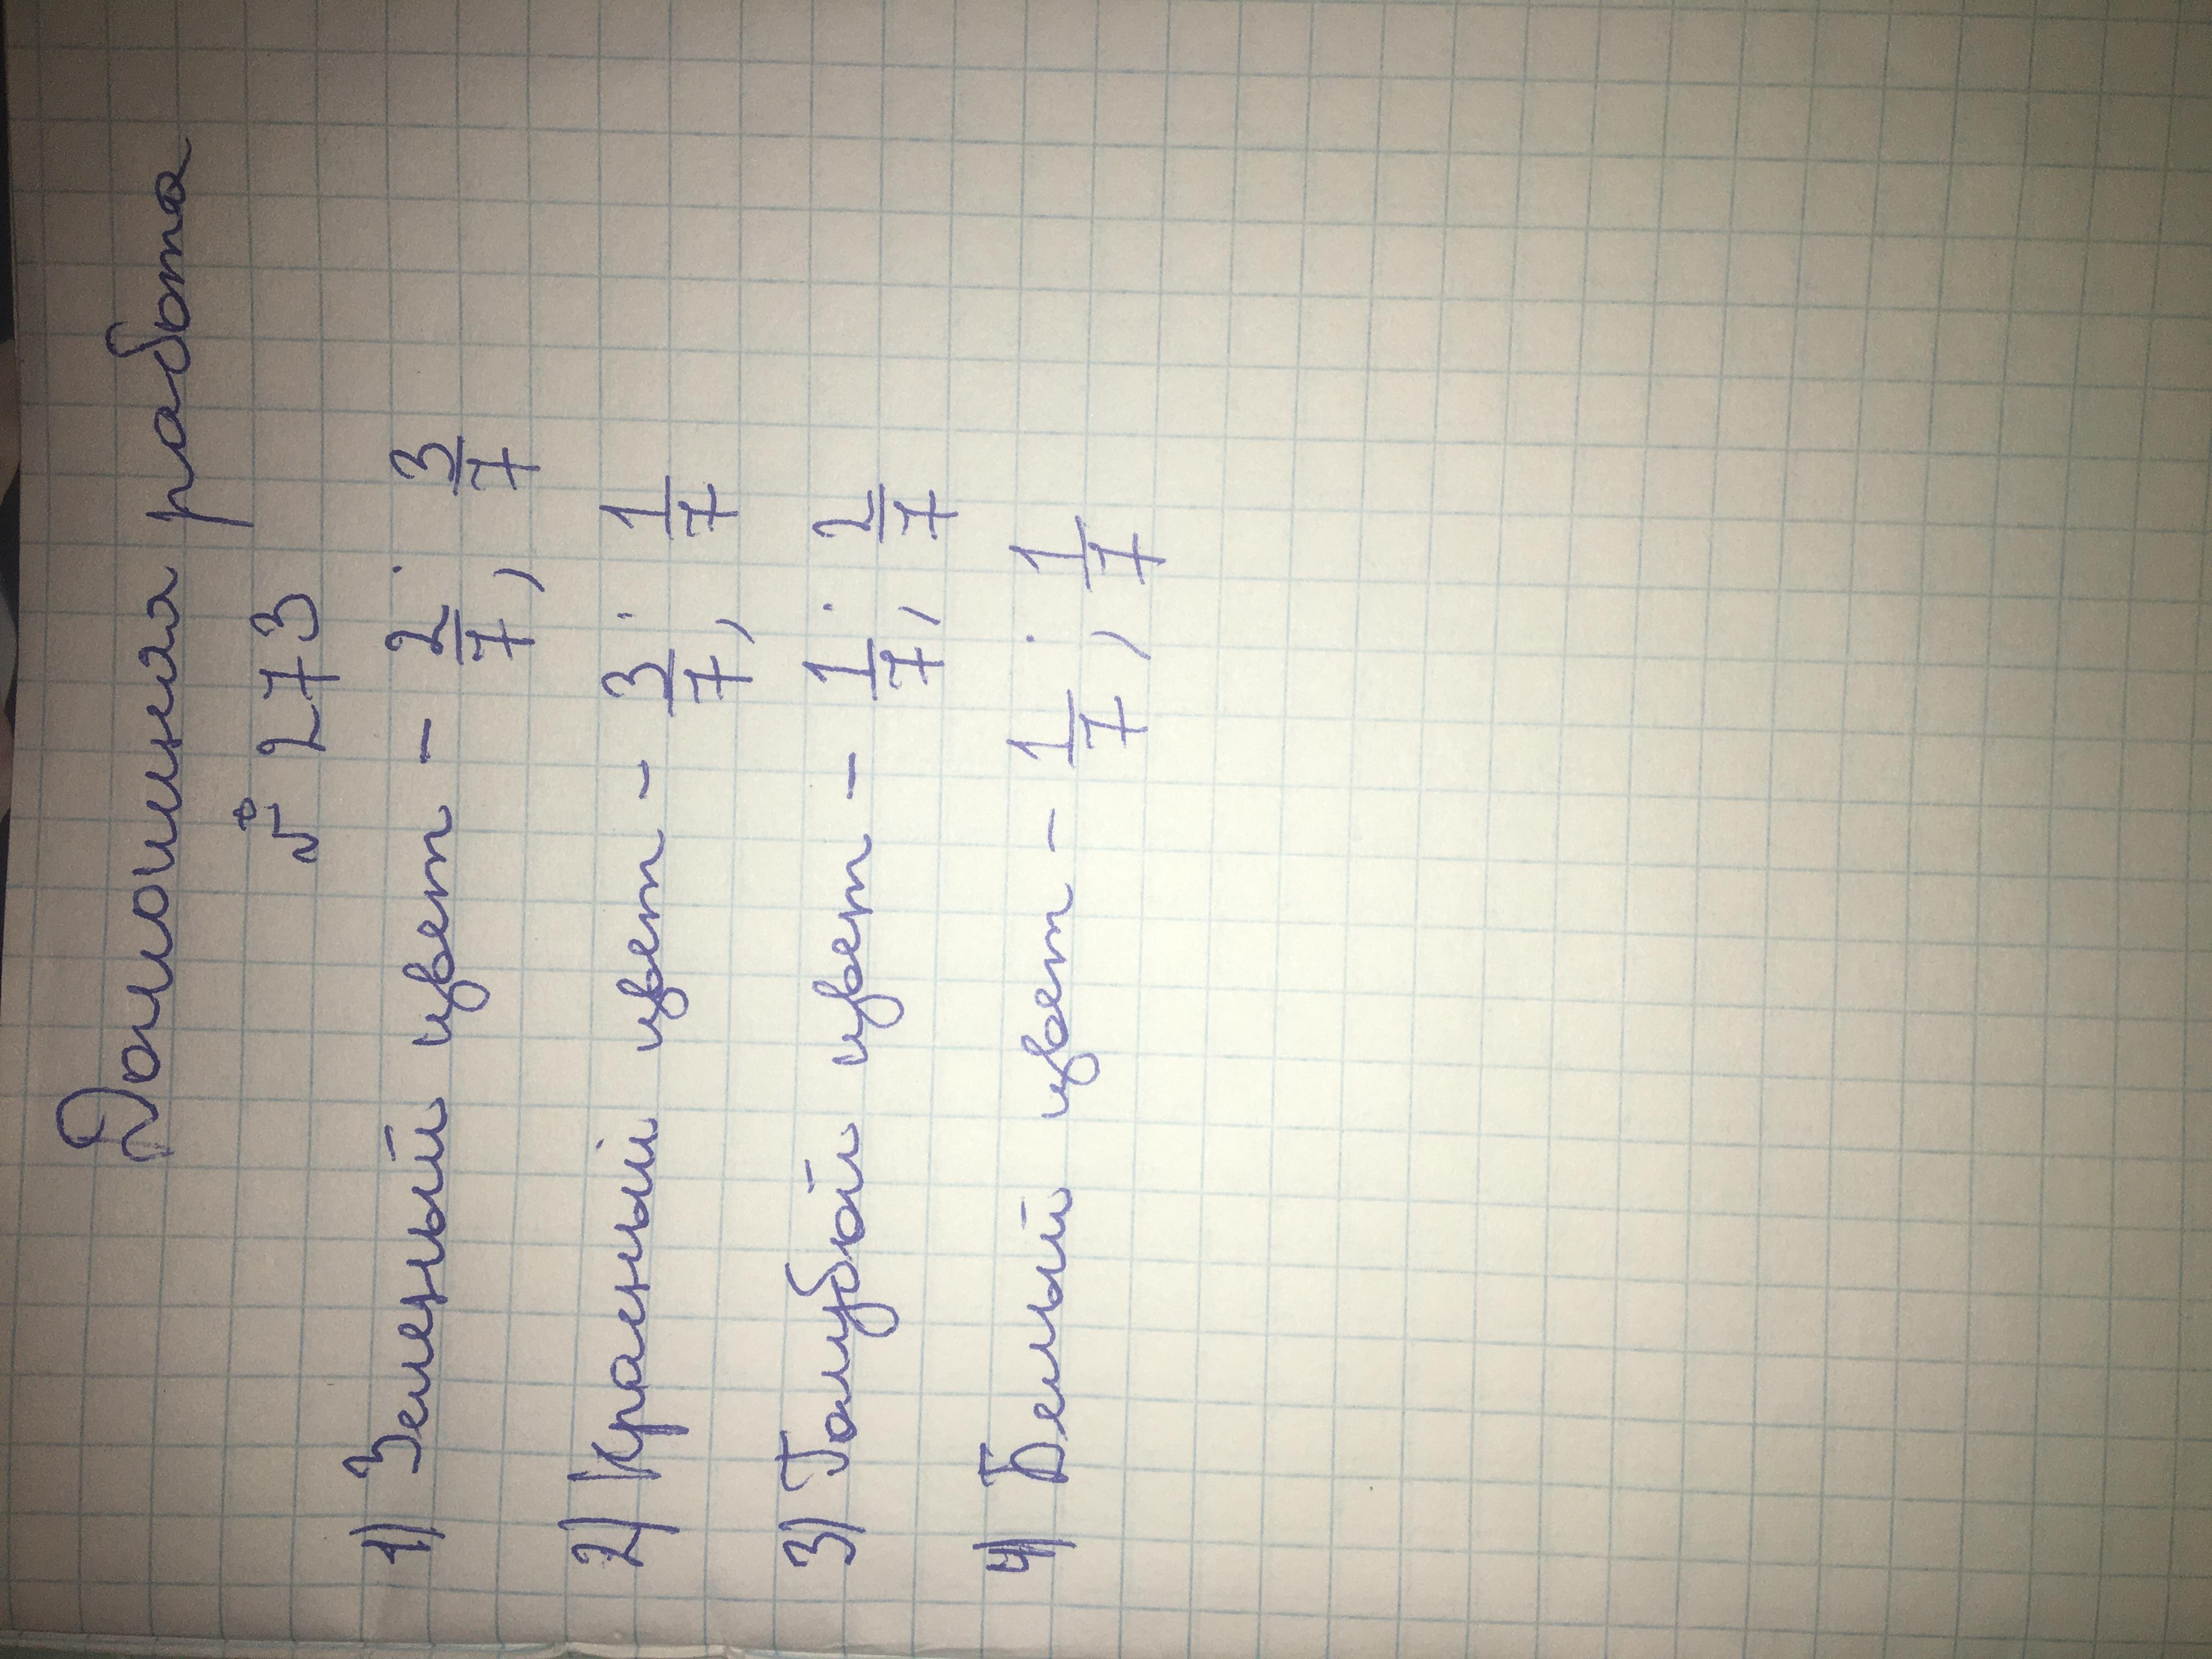 Домошняа работа
№ 273
1) Зеленый цвет - 2/7; 3/7
2) Красный цвет - 3/7; 1/7
3) Голубой цвет - 1/7; 2/7
4) Белый цвет - 1/7; 1/7